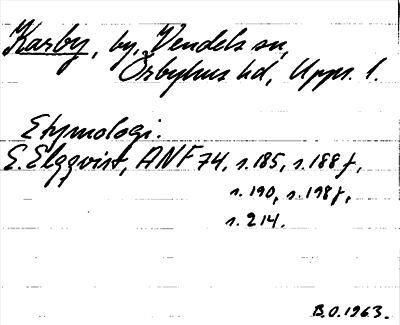 Karby, by, Vendels sn,
Örbyhus hd, Upps. l.
Etymologi.
E. Elgqvist, ANF 74, s. 185, s. 188 f,
s. 190, s. 198 f,
s. 214.
B.O. 1963.